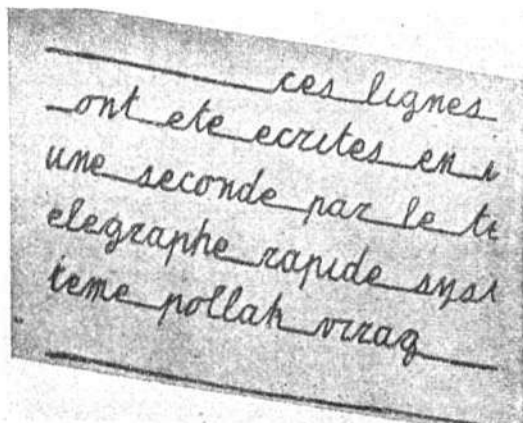 ces lignes
ont ete ecrites en
une seconde par le te
elegraphe rapide syst
teme pollak virag